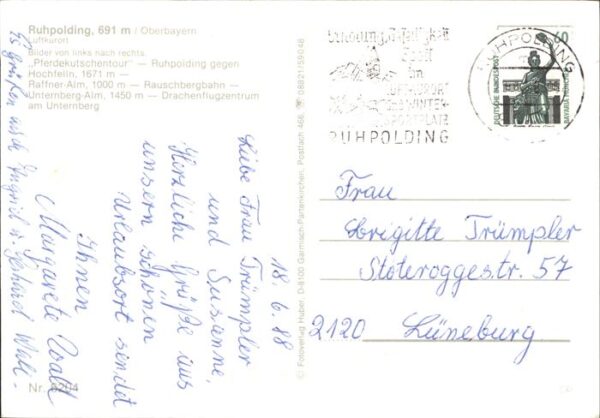 Ruhpolding, 691 m / Oberbayern
Luftkurort
Bilder von links nach rechts.
„Pferdekutschentour" — Ruhpolding gegen
Hochfelln, 1671 m —
Raffner-Alm, 1000 m — Rauschbergbahn —
Unternberg-Alm, 1450 m — Drachenflugzentrum
am Unternberg
Nr. 8204
© Fotoverlag Huber, D-8100 Garmisch-Partenkirchen, Postfach 466
08821/59046
18.6.88
Liebe Frau Trümpler
und Susanne,
Herzliche Grüße aus
unserm schönen
Urlaubsort sendet
Ihnen
Margarete
Es grüßen auch Ingrid u. Gerhard
Erholung, Geselligkeit
Sport
im
LUFTKURORT
& WINTER-
SPORTPLATZ
RUHPOLDING
RUHPOLDING
60
DEUTSCHE BUNDESPOST
BAVARIA MÜNCHEN
Frau
Brigitte Trümpler
Stoteroggestr. 57
2120 Lüneburg